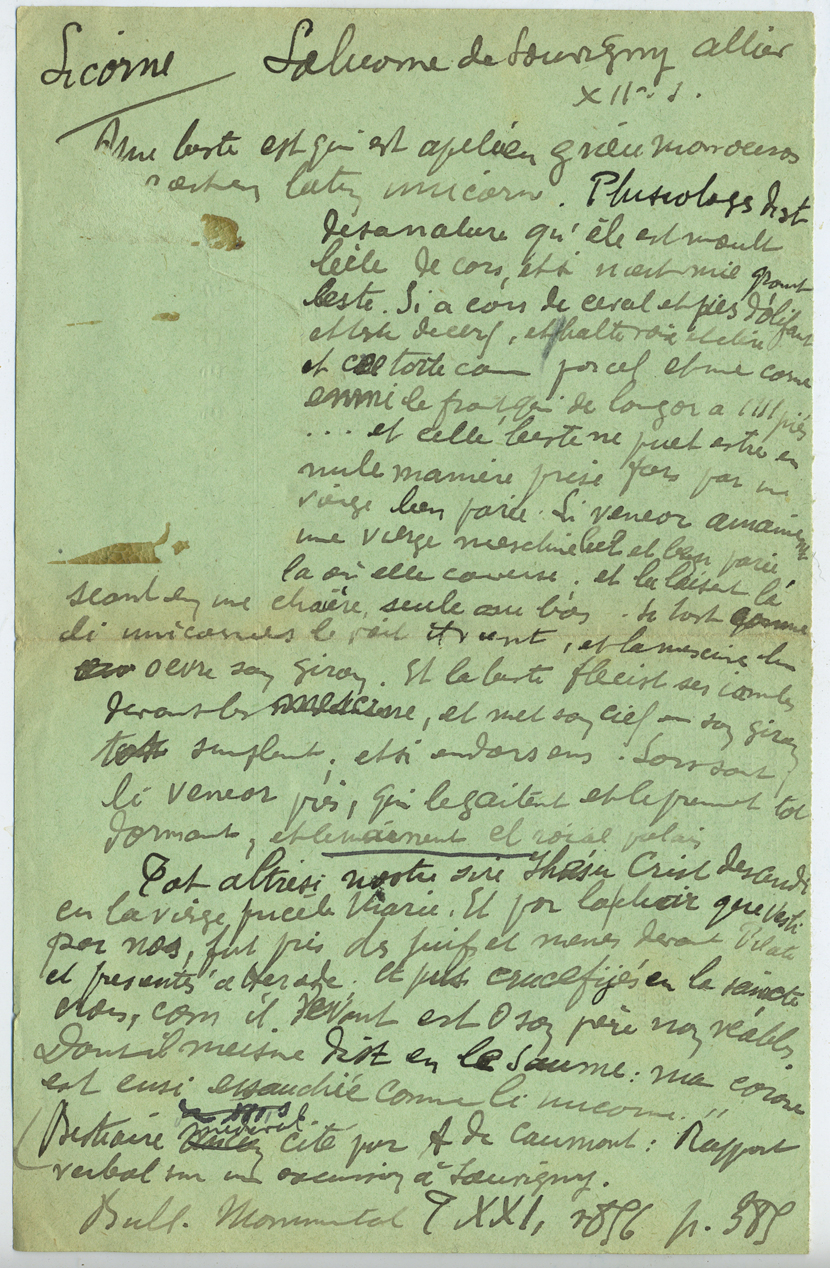 Licorne La licorne de Souvigny allier
XII s.
Une beste est qui est apelée en grieu monoceros
c'est en latin unicorn. Phisologes dist
de sa nature qu'ele est moult
bele de cors, et si n'est mie grant
beste. Si a cors de ceval et piés d'olifant
et teste de cerf, et halte vois et clere
et coe torte com porcel et une corne
enmi le front qui de longor a IIII piés
.... et celle beste ne puet estre en
nule maniere prise fors par une
virge bien parée. Li veneor amainent
une virge meschine bel et bien parée
la où elle converse. et la laisent là
seant en une chaère, seule au bos. Si tost comme
li unicornes le voit et vient, et la mescine
oevre son giron. Et la beste flecist ses jambes
devant la mescine, et met son cief en son giron
tot simplement, et si endors ens. Lors sont
li veneor près, qui le gaitent et le prennent tot
dormant, et le mainent el roial palais
Tot altresi nostre sire Jhésu Crist descendi
en la virge pucele Marie. Et por la char que vesti
por nos, fut pris des juifs et menés devant Pilate
et presentés a Herode. Et puis crucefijés en la saincte
crois, com il devant est o son père non véables.
Dont il meisme dist en le Saume: ma corne
est ensi essauchée comme li unicorne. "
(Bestiaire médiéval cité par A de Caumont: Rapport
verbal sur une excursion à Souvigny.
Bull. Monumental T XXI, 1856 p. 385